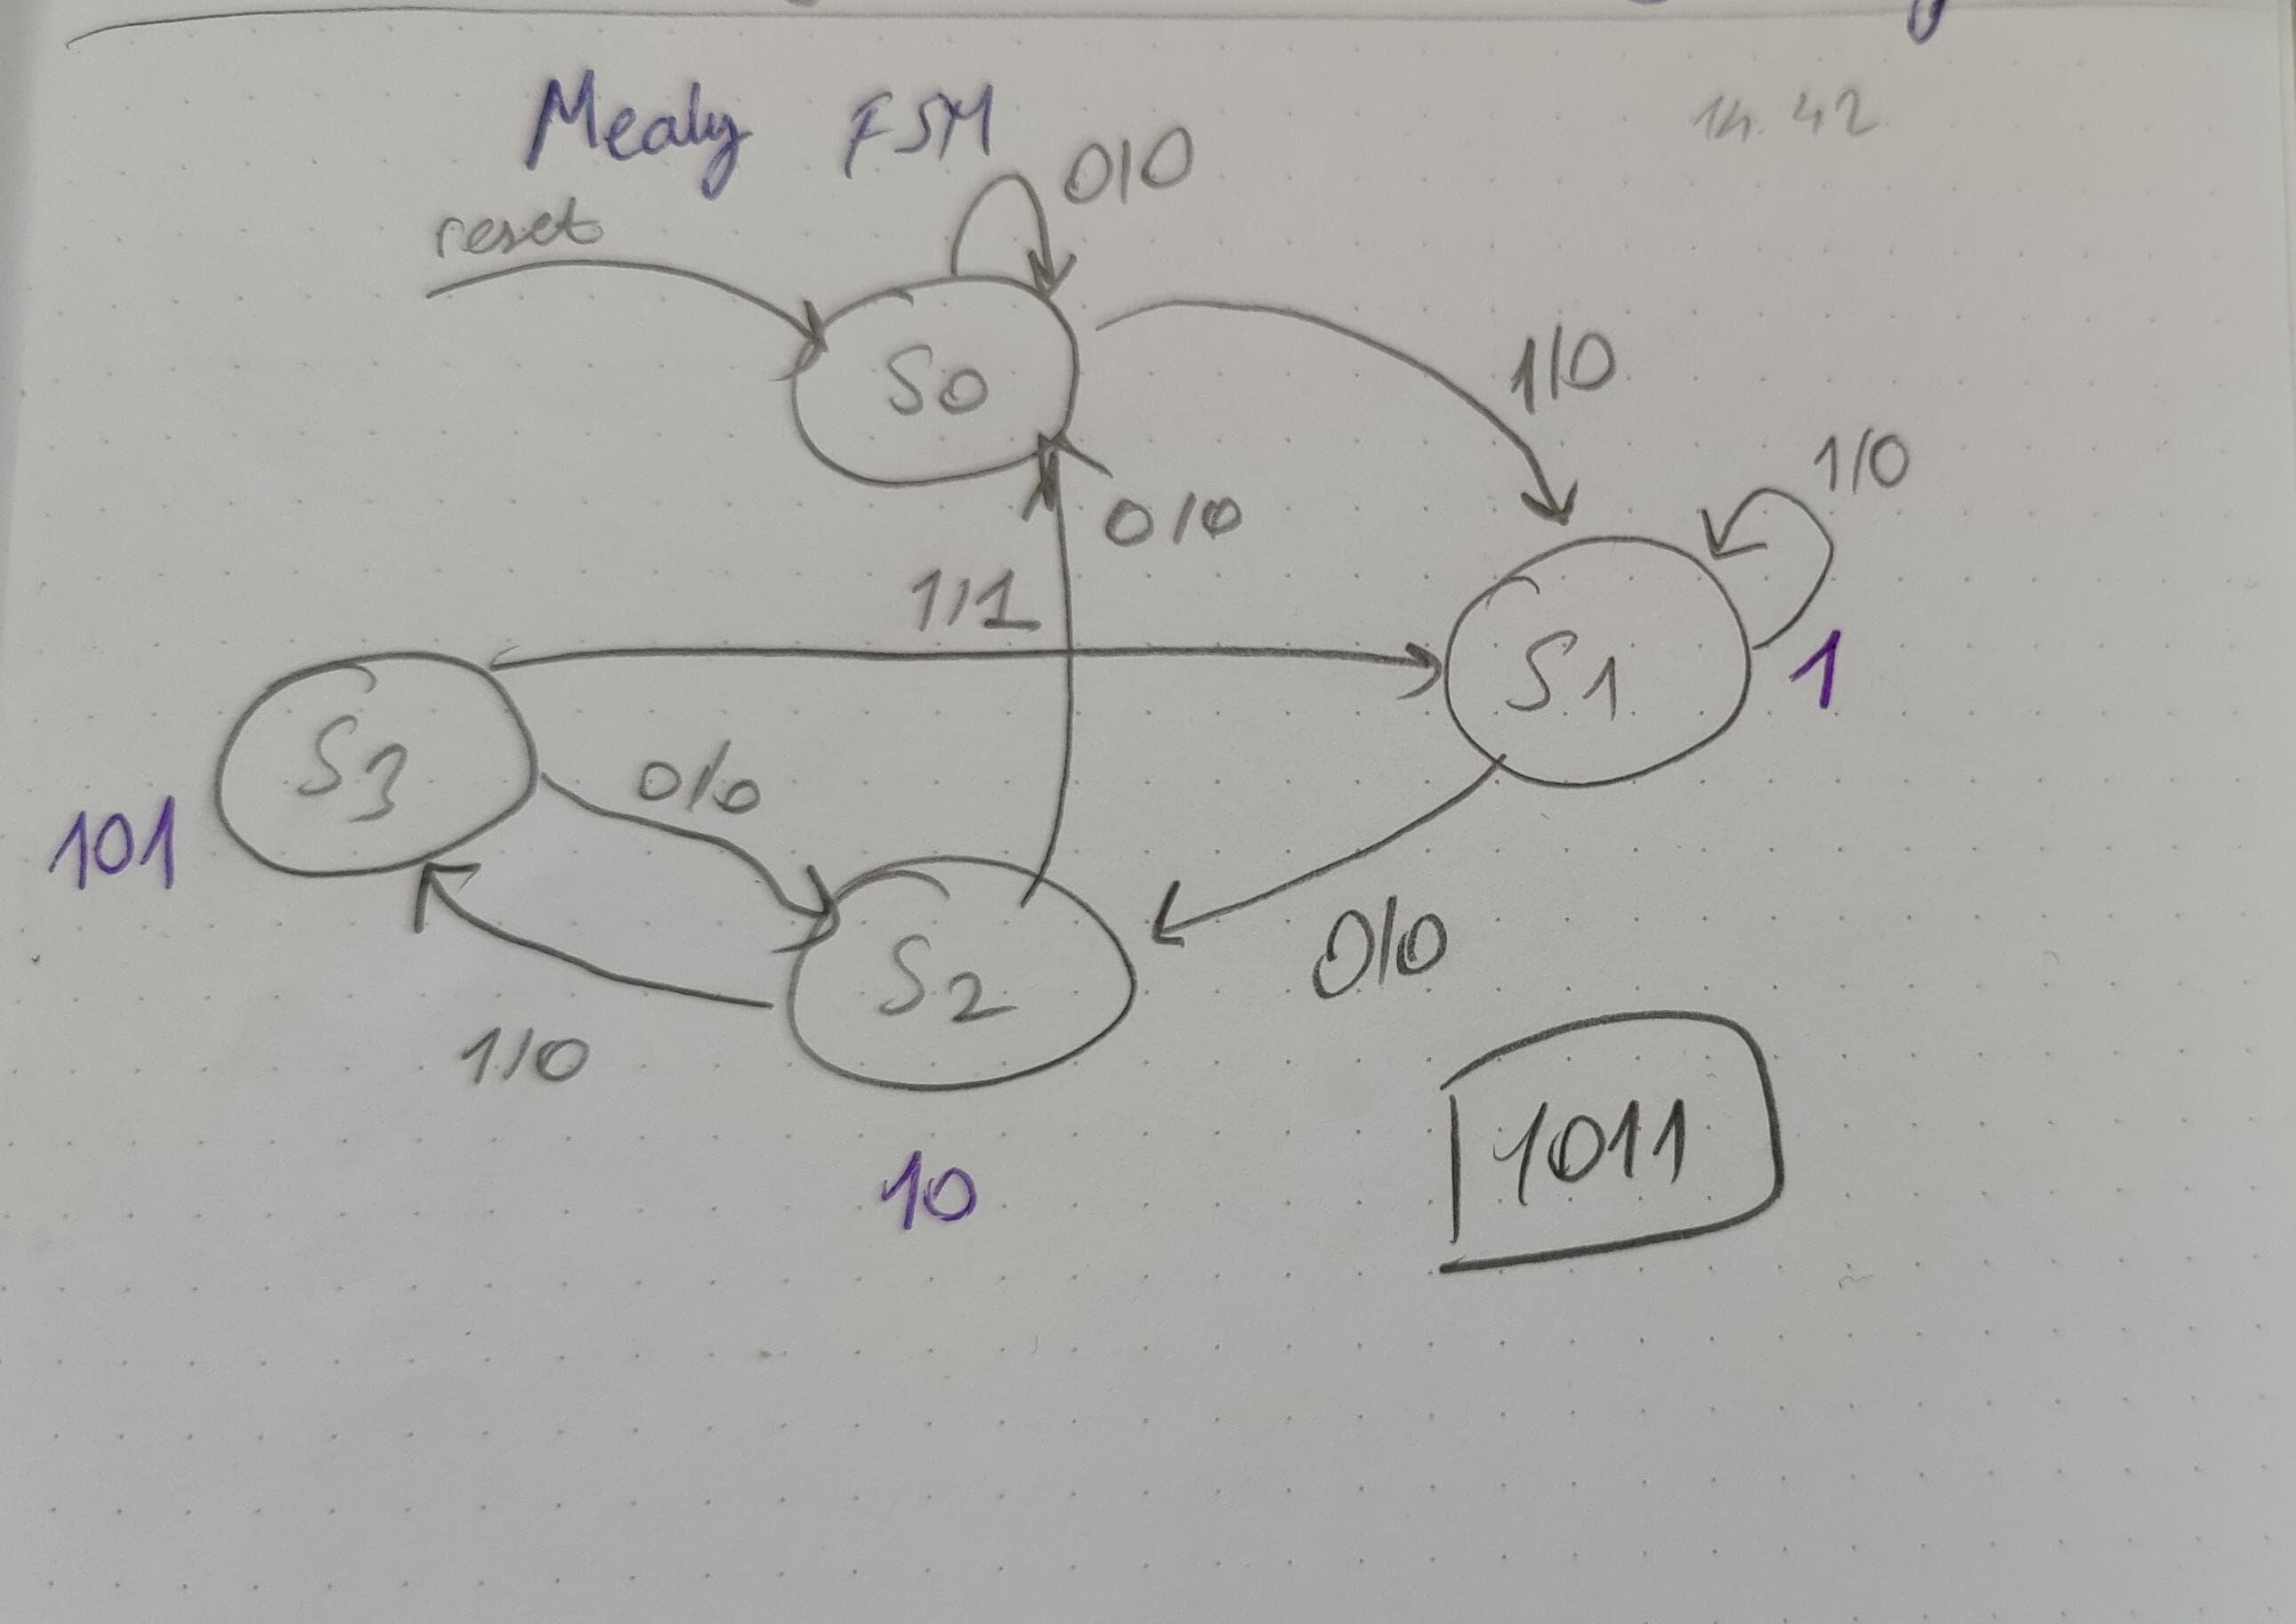 Mealy FSM
14.42
reset
0/0
S0
1/0
1/0
0/0
1/1
S1
1
S3
0/0
101
S2
0/0
1/0
10
1011